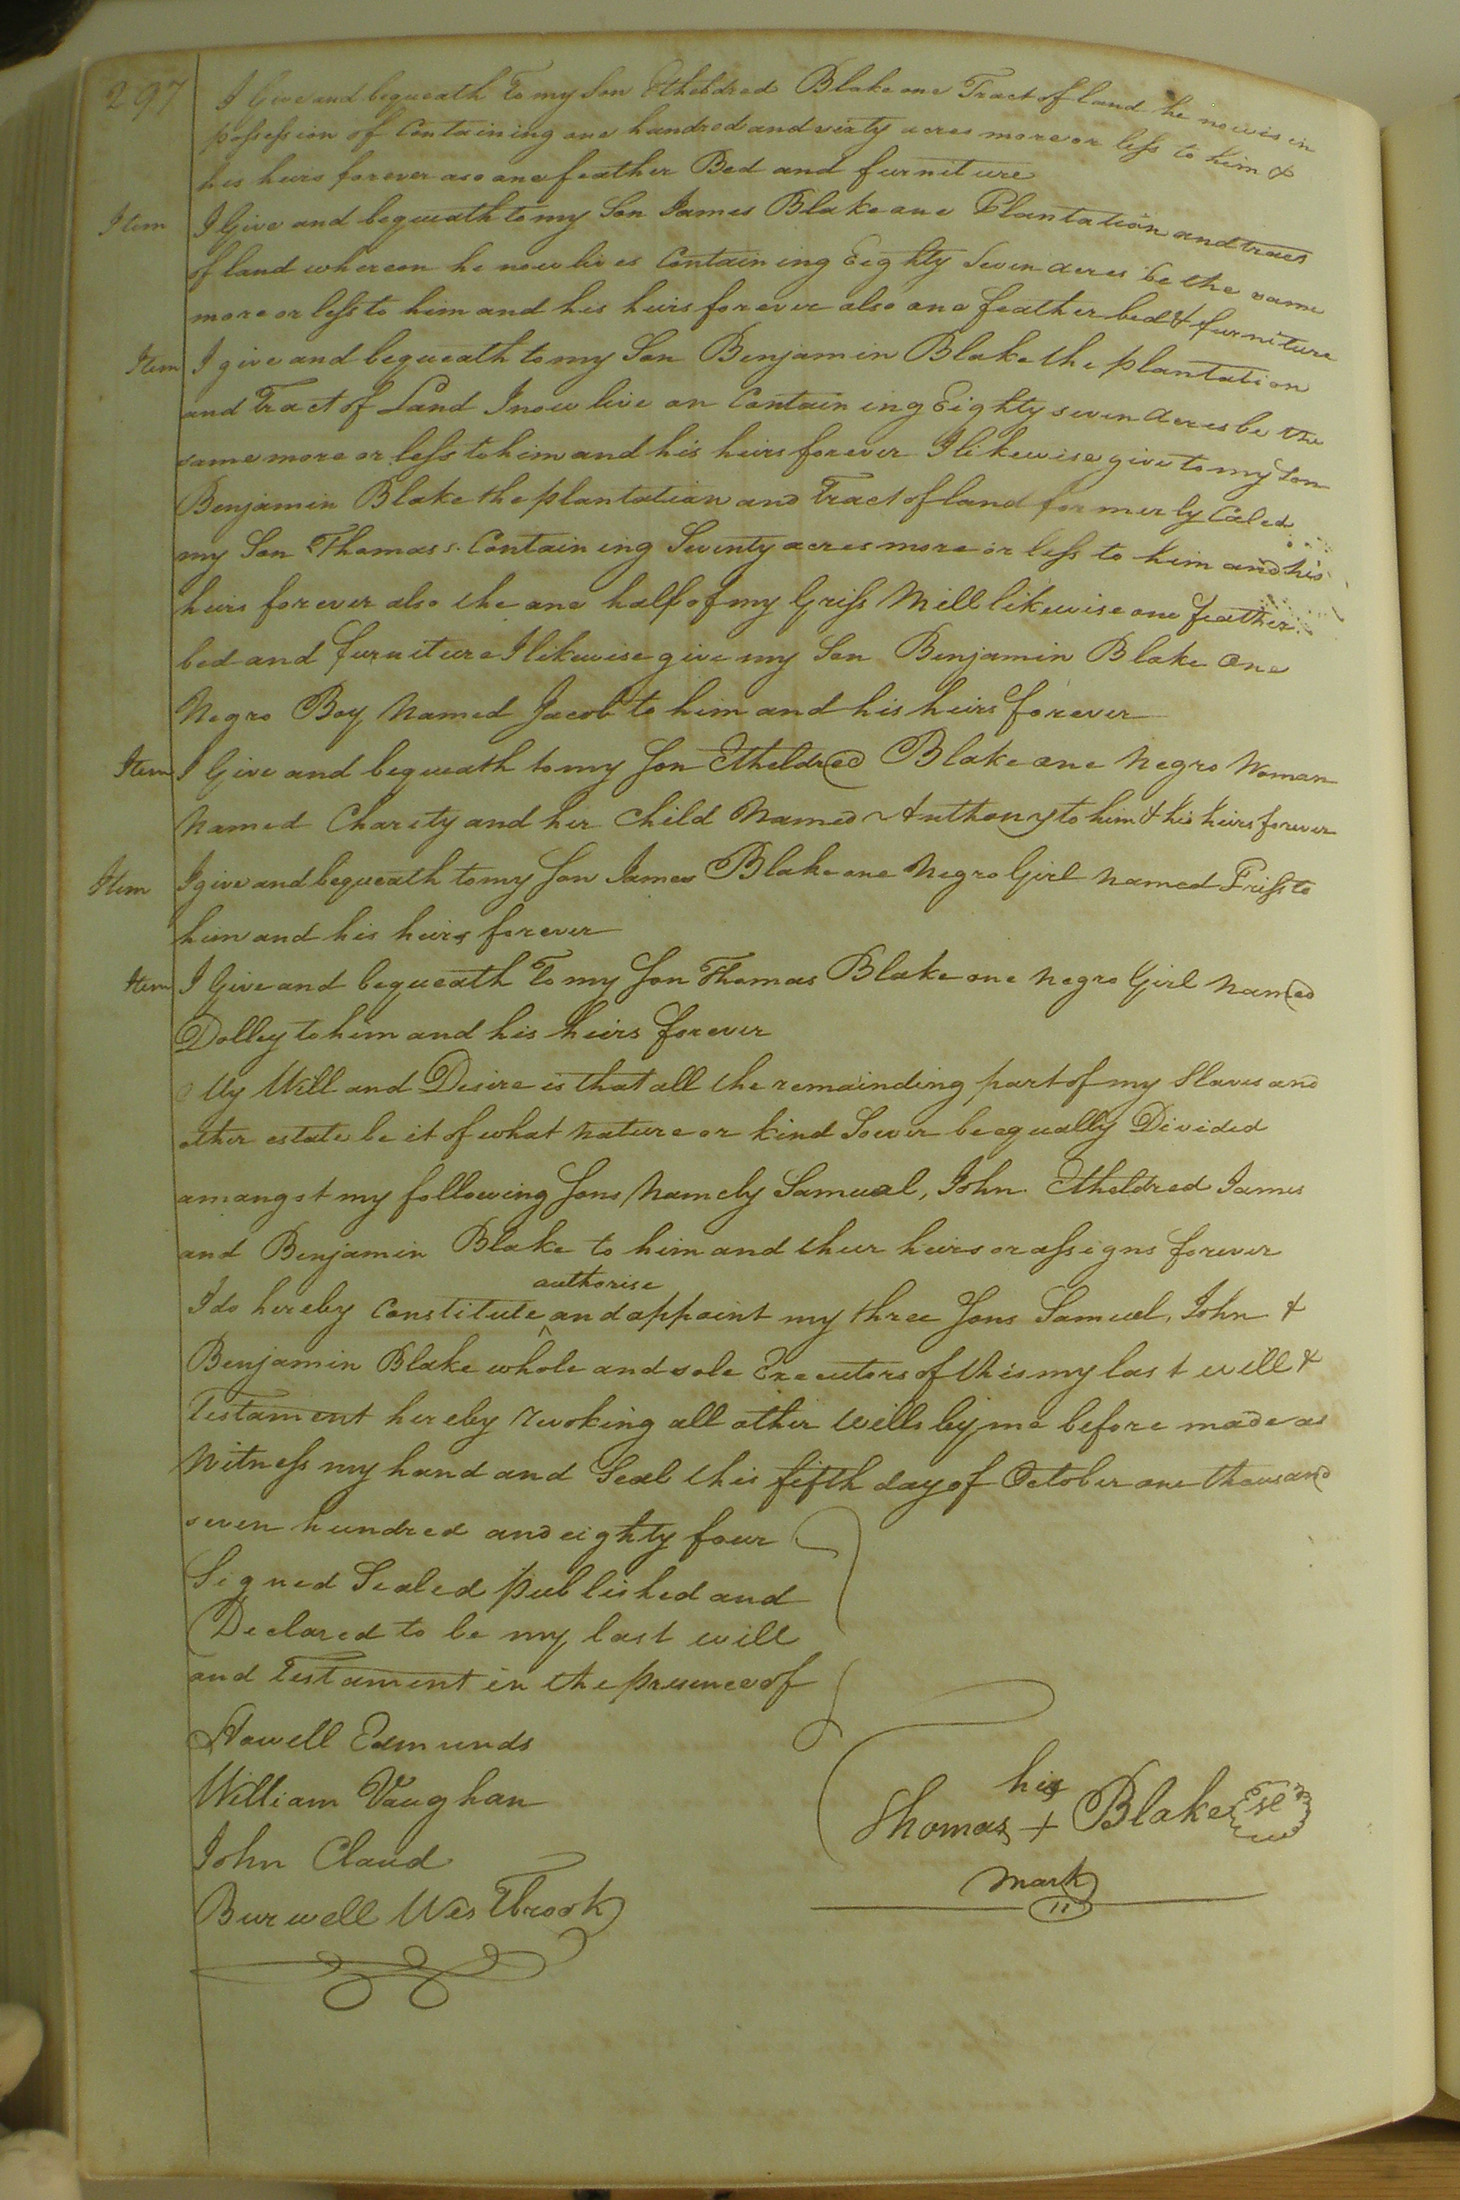 297 I Give and bequeath To my Son Etheldred Blake one Tract of land he now is in
possession of Containing one hundred and sixty acres more or less to him &
his heirs forever aso one feather Bed and furniture
Item I Give and bequeath to my Son James Blake one Plantation and tract
of land whereon he now lives Containing Eighty Seven acres be the same
more or less to him and his heirs forever also one feather bed & furniture
Item I give and bequeath to my Son Benjamin Blake the plantation
and Tract of Land I now live on Containing Eighty seven Acres be the
same more or less to him and his heirs forever I likewise give to my Son
Benjamin Blake the plantation and Tract of land formerly Caled
my Son Thomass. Containing Seventy acres more or less to him and his
heirs forever also the one half of my Griss Mill likewise one feather
bed and furniture I likewise give my Son Benjamin Blake One
Negro Boy Named Jacob to him and his heirs forever
Item I Give and bequeath to my Son Etheldred Blake one Negro Woman
Named Charity and her Child Named Anthony to him & his heirs forever
Item I give and bequeath to my Son James Blake one Negro Girl Named Friss to
him and his heirs forever
Item I Give and bequeath To my Son Thomas Blake one negro Girl Named
Dolley to him and his heirs forever
My Will and Desire is that all the remainding part of my Slaves and
other estate be it of what nature or kind Soever be equally Divided
amangst my following Sons Namely Samuel, John Etheldred James
and Benjamin Blake to him and their heirs or assigns forever
authorise
I do hereby Constitute ^ and appoint my three Sons Samuel, John &
Benjamin Blake whole and sole Executors of this my last will &
Testament hereby revoking all other wills by me before made as
Witness my hand and Seal this fifth day of October one thousand
seven hundred and eighty four
Signed Sealed published and
Declared to be my last will
and Testament in the presence of
Howell Edmunds
William Vaughan
John Claud
Burwell Westbrook
his
Thomas + Blake Se
mark